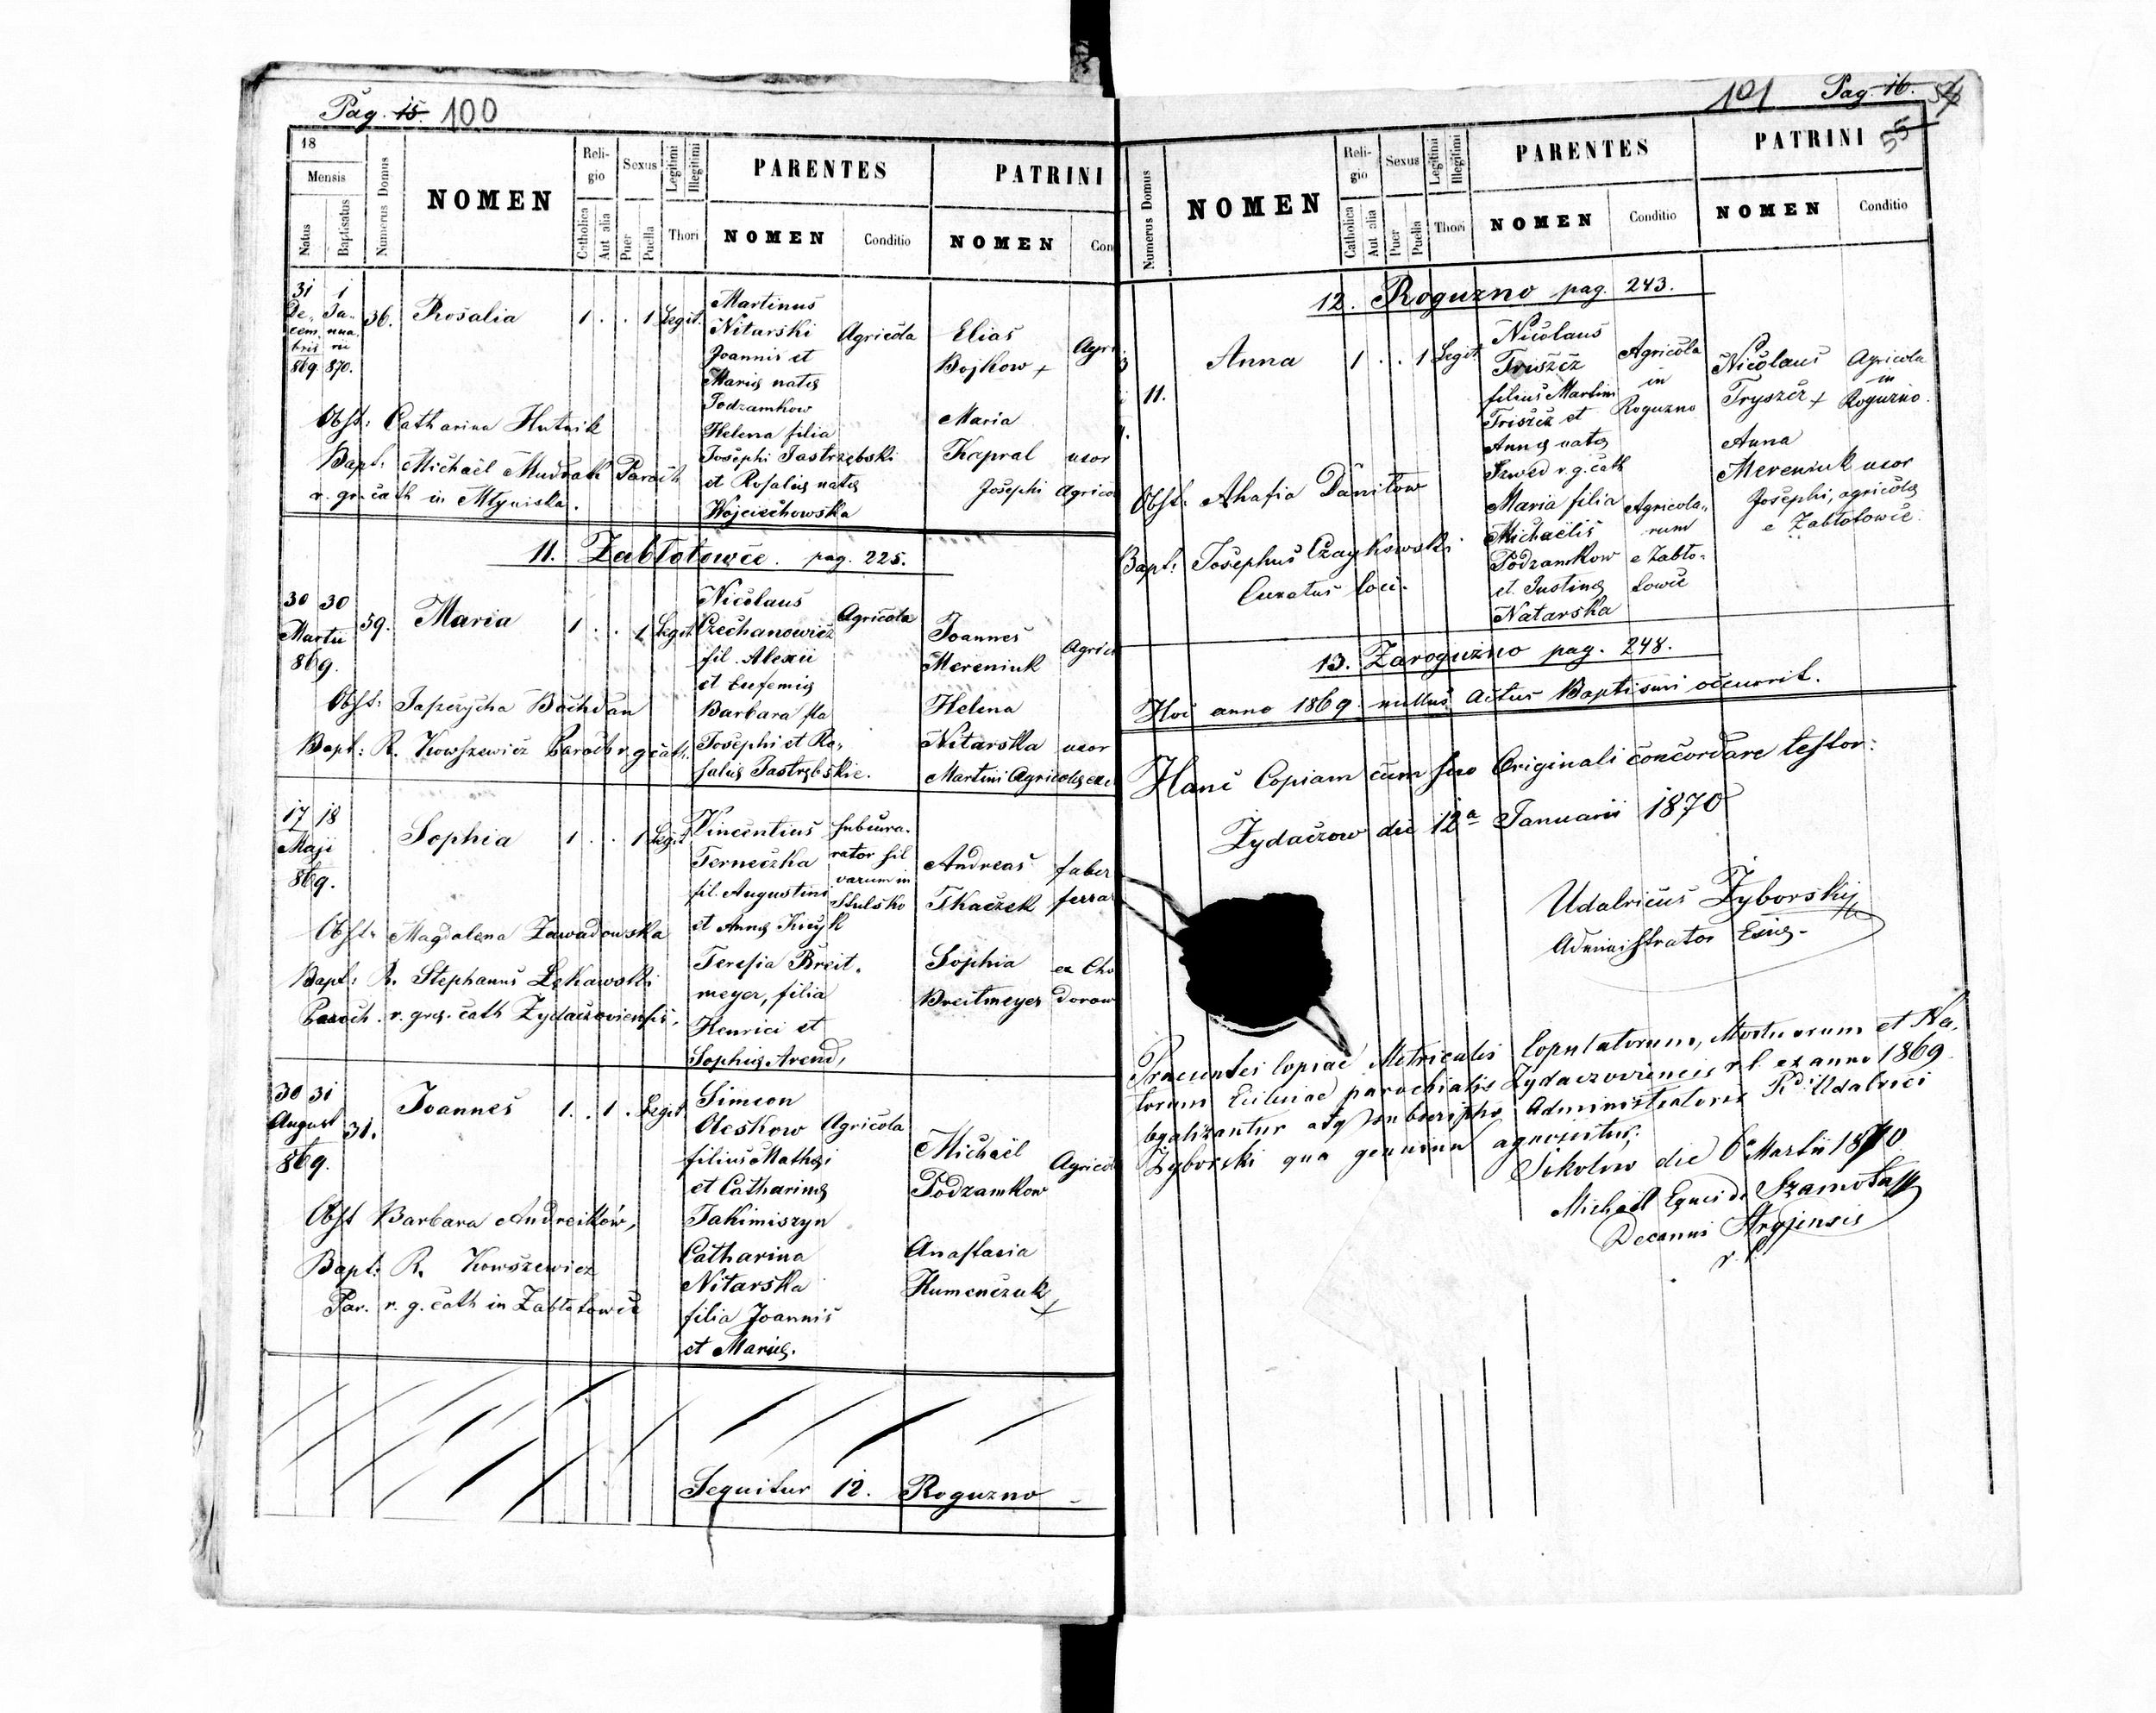 Pag. 15. 100
18
Mensis
Natus
Baptisatus
Numerus Domus
NOMEN
Religio
Catholica
Aut alia
Sexus
Puer
Puella
Legitimi
Illegitimi
Thori
PARENTES
NOMEN
Conditio
PATRINI
NOMEN
Con
31 1
De- Ja-
cem nua
bris rii
869. 870.
36.
Rosalia
1 . . 1 Legit.
Martinus
Nitarski
Joannis et
Mariæ natæ
Podzamkow
Helena filia
Josephi Jastrzębski
et Rosaliæ natæ
Wojciechowska
Agricola
Elias
Bojkow +
Maria
Kapral uxor
Josephi Agrico
Agri
Obst: Catharina Hutnik
Bapt: Michaël Mudrak Paroch
r. gr. cath in Młyniska.
11. Żabłotowce. pag. 225.
30 30
Martii
869.
59.
Maria
1 . . 1 Legit
Nicolaus
Czechanowicz
fil. Alexii
et Eufemiæ
Barbara fla
Josephi et Ro-
saliæ Jastrzębskie.
Agricola
Joannes
Mereniuk
Helena
Nitarska uxor
Martini Agricolæ
Agric
Obst: Bochdan
Bapt: R. Kowszewicz Paroch r. g. cath.
17 18
Maji
869.
Sophia
1 . . 1 Legit
Vincentius
Terneczka
fil. Augustini
et Annæ
Teresia Breit-
meyer, filia
Henrici et
Sophiæ Arend,
subcura-
rator sil
varum in
Stulsko
Andreas faber
Tkaczek ferra
Sophia ex Cho
Breitmeyer dorow
Obst: Magdalena Zawadowska
Bapt: R. Stephanus Łękawski
Paroch. r. græ. cath Żydaczoviensis.
30 31
August
869.
31.
Joannes
1 . 1 . Legit
Simeon
Oleskow
filius Mathæi
et Catharinæ
Jakimiszyn
Catharina
Nitarska
filia Joannis
et Mariæ.
Agricola
Michaël
Podzamkow
Anastasia
Kumenczuk +
Agricol
Obst Barbara Andreików,
Bapt: R. Kowszewicz
Par. r. g. cath in Żabłotowce
Sequitur 12. Roguzno
101 Pag. 16.
55
Numerus Domus
NOMEN
Religio
Catholica
Aut alia
Sexus
Puer
Puella
Legitimi
Illegitimi
Thori
PARENTES
NOMEN
Conditio
PATRINI
NOMEN
Conditio
12. Roguzno pag. 243.
11.
Anna
1 . . 1 Legit
Nicolaus
Triszcz
filius Martini
Triszcz et
Annæ natæ
Szwed r. g. cath
Maria filia
Michaëlis
Podzamkow
et Justinæ
Natarska
Agricola
in
Roguzno
Agricola-
rum
e Żabło-
towce
Nicolaus
Tryszcz +
Anna
Mereniuk uxor
Josephi, agricolæ
e Żabłotowce.
Agricola
in
Roguzno.
Obst. Ahafia Daniłow
Bapt: Josephus Czaykowski
Curatus loci.
13. Zaroguzno pag. 248.
Hoc anno 1869 nullus Actus Baptismi occurrit.
Hanc Copiam cum suo Originali concordare testor:
Żydaczow die 12ª Januarii 1870
Udalricus Żyborskij
Administrator Eccæ.
Praesentes Copiae Metricalis Copulatorum, Mortuorum et Na-
torum Ecclesiae parochialis Żydaczoviensis r. l. ex anno 1869
legalizantur atq subscriptio Administratoris Rdi Udalrici
Żyborski qua genuina agnoscitur.
Sokolow die 6ª Martii 1870
Michaël Eques de Szamota
Decanus Stryjensis
r. l.